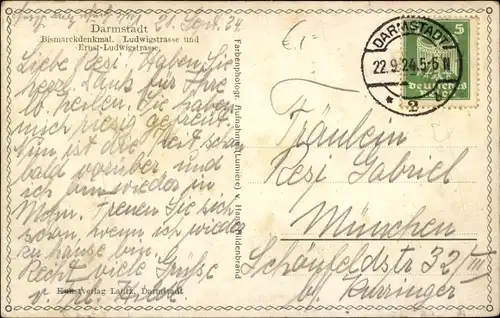 21. Sept. 24
Darmstadt
Bismarckdenkmal. Ludwigstrasse und
Ernst-Ludwigstrasse.
Liebe Resi! Haben Sie
herzl. Dank für Ihre
lb. Zeilen. Sie haben
mich riesig gefreut.
Nun ist die Zeit schon
bald vorüber und
ich bin wieder in
Mchn. Freuen Sie sich
schon, wenn ich wieder
zu Hause bin.
Recht viele Grüße
v.
Kunstverlag Lautz, Darmstadt
Farbenphotogr. Aufnahme (Lumière) v. Hans Hildenbrand
€1-
DARMSTADT
22.9.24.5-6 N
* 2
5
Deutsches
Fräulein
Resi Gabriel
München
Schönfeldstr 32/III
b/ Kurringer